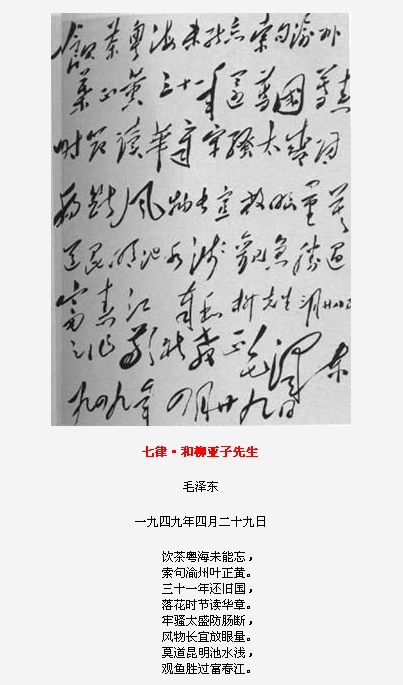 飲茶粤海未能忘索句渝州
葉正黄三十一年還舊國落花
時節讀華章牢騷太盛防
腸斷風物长宜放眼量莫
道昆明池水浅觀魚勝過
富春江 奉和柳先生三月廿八日
之作敬祈教正 毛澤东
一九四九年四月廿九日
七律·和柳亚子先生
毛泽东
一九四九年四月二十九日
饮茶粤海未能忘，
索句渝州叶正黄。
三十一年还旧国，
落花时节读华章。
牢骚太盛防肠断，
风物长宜放眼量。
莫道昆明池水浅，
观鱼胜过富春江。